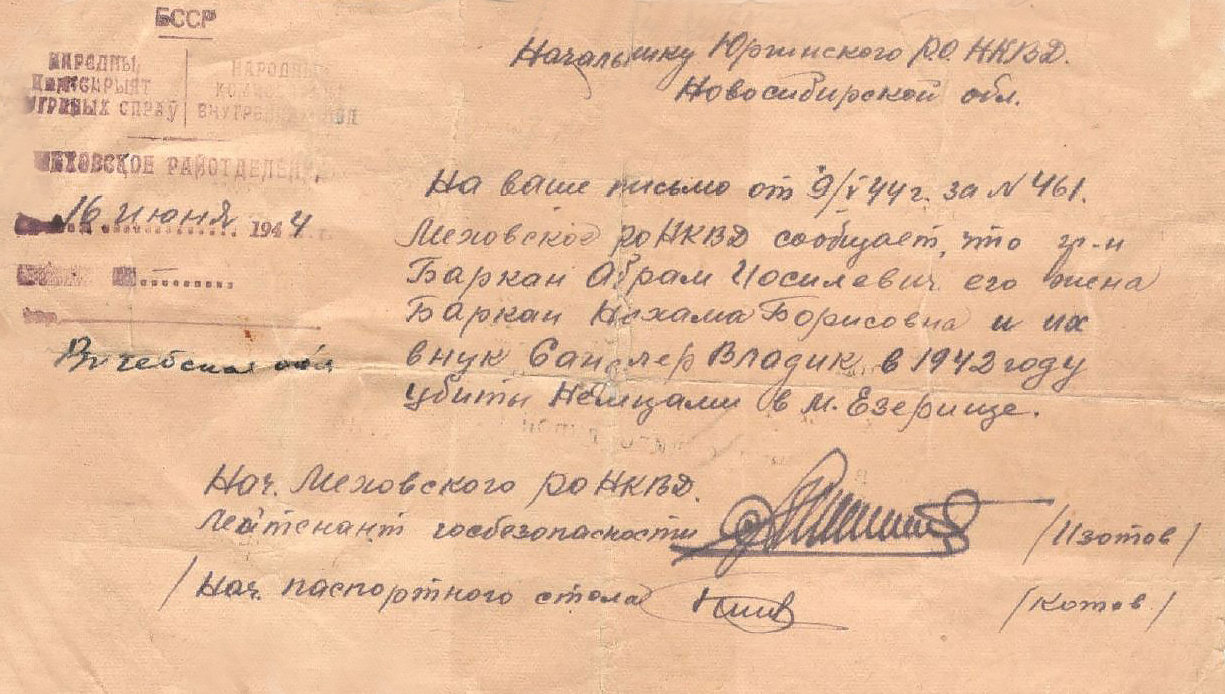 БССР
НАРОДНЫ
КАМІСАРЫЯТ
УНУТРАНЫХ СПРАЎ
НАРОДНЫЙ
ВНУТРЕННИХ ДЕЛ
МЕХОВСКОЕ РАЙОТДЕЛЕНИЕ
16 июня 1944 г.
Витебская обл
Начальнику Юргинского РО НКВД.
Новосибирской обл.
На ваше письмо от 9/V 44 г. за N 461.
Меховское РО НКВД сообщает, что гр-н
Баркан Абрам Иосилевич его жена
Баркан Нехама Борисовна и их
внук Сандлер Владик в 1942 году
убиты немцами в м. Езерище.
Нач. Меховского РО НКВД.
Лейтенант госбезопасности /Изотов/
/Нач. паспортного стола /Котов./